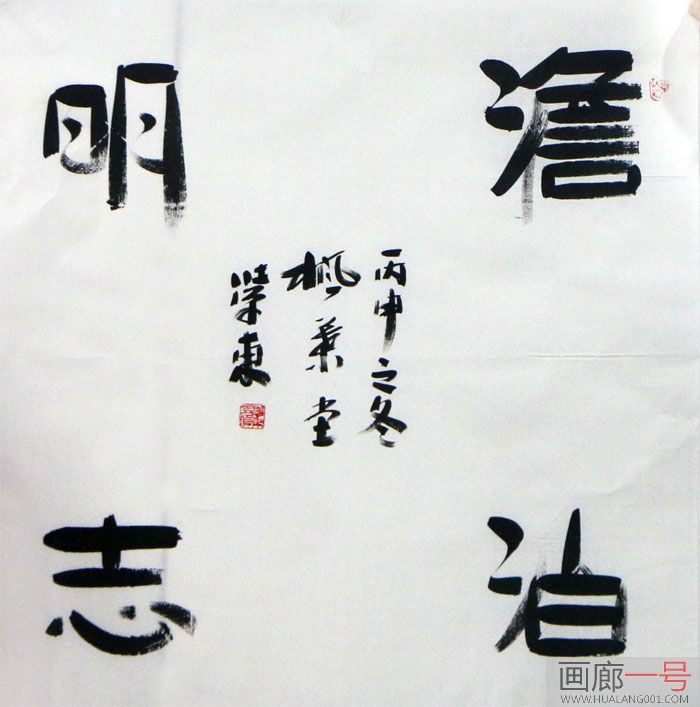 澹泊
明志
丙申之冬
枫叶堂
荣东
画廊一号
WWW.HUALANG001.COM